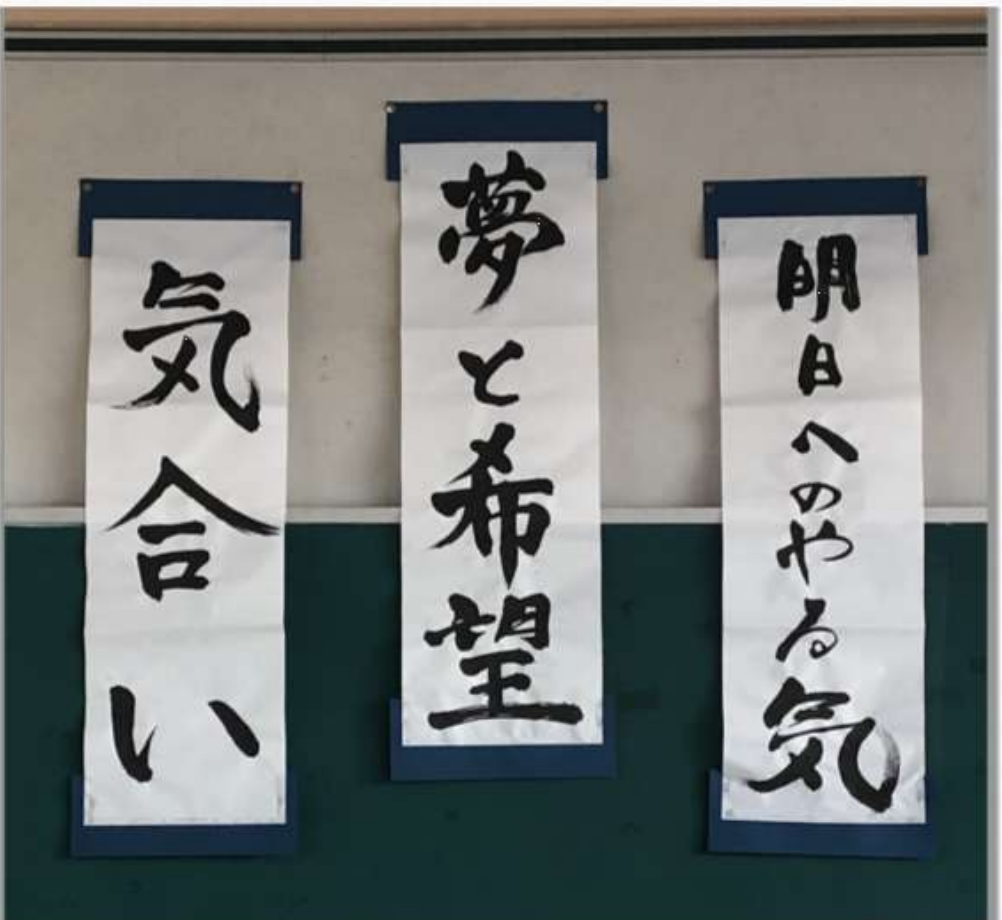 明日へのやる気
夢と希望
気合い